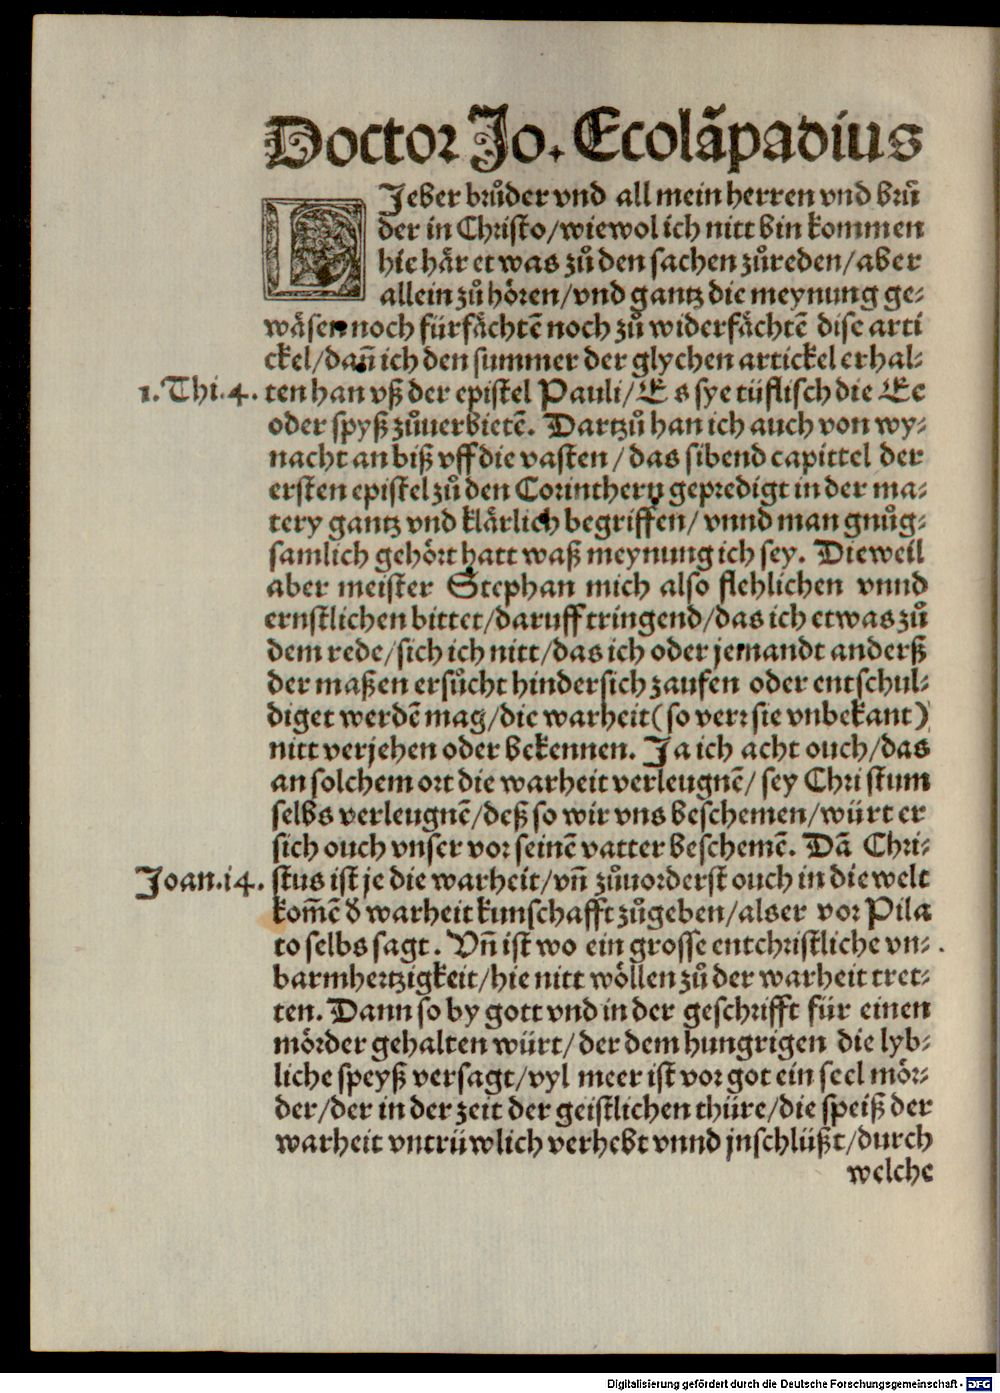 Doctor Jo. Ecolãpadius
LJeber brůder vnd all mein herren vnd brů
der in Christo/wiewol ich nitt bin kommen
hie här etwas zů den sachen zůreden/aber
allein zů hören/vnd gantz die meynung ge⸗
wäsen noch fürfächtē noch zů widerfächtē dise arti
ckel/dañ ich den summer der glychen artickel erhal⸗
1. Thi. 4. ten han vß der epistel Pauli/Es sye tüflisch die Ee
oder spyß zůuerbietē. Dartzů han ich auch von wy⸗
nacht an biß vff die vasten/das sibend capittel der
ersten epistel zů den Corinthern gepredigt in der ma⸗
tery gantz vnd klärlich begriffen/vnnd man gnůg⸗
samlich gehört hatt waß meynung ich sey. Dieweil
aber meister Stephan mich also flehlichen vnnd
ernstlichen bittet/daruff tringend/das ich etwas zů
dem rede/sich ich nitt/das ich oder jemandt anderß
der maßen ersůcht hindersich zaufen oder entschul⸗
diget werdē mag/die warheit(so verr sie vnbekant)
nitt verjehen oder bekennen. Ja ich acht ouch/das
an solchem ort die warheit verleugnē/sey Christum
selbs verleugnē/deß so wir vns beschemen/würt er
sich ouch vnser vor seinē vatter beschemē. Dã Chri⸗
Joan. i4. stus ist je die warheit/vñ zůuorderst ouch in die welt
kom̃ē d warheit kunschafft zůgeben/als er vor Pila
to selbs sagt. Vñ ist wo ein grosse entchristliche vn⸗
barmhertzigkeit/hie nitt wöllen zů der warheit tret⸗
ten. Dann so by gott vnd in der geschrifft für einen
mörder gehalten würt/der dem hungrigen die lyb⸗
liche speyß versagt/vyl meer ist vor got ein seel mör⸗
der/der in der zeit der geistlichen thüre/die speiß der
warheit vntrüwlich verhebt vnnd jnschlüßt/durch
welche
Digitalisierung gefördert durch die Deutsche Forschungsgemeinschaft - DFG